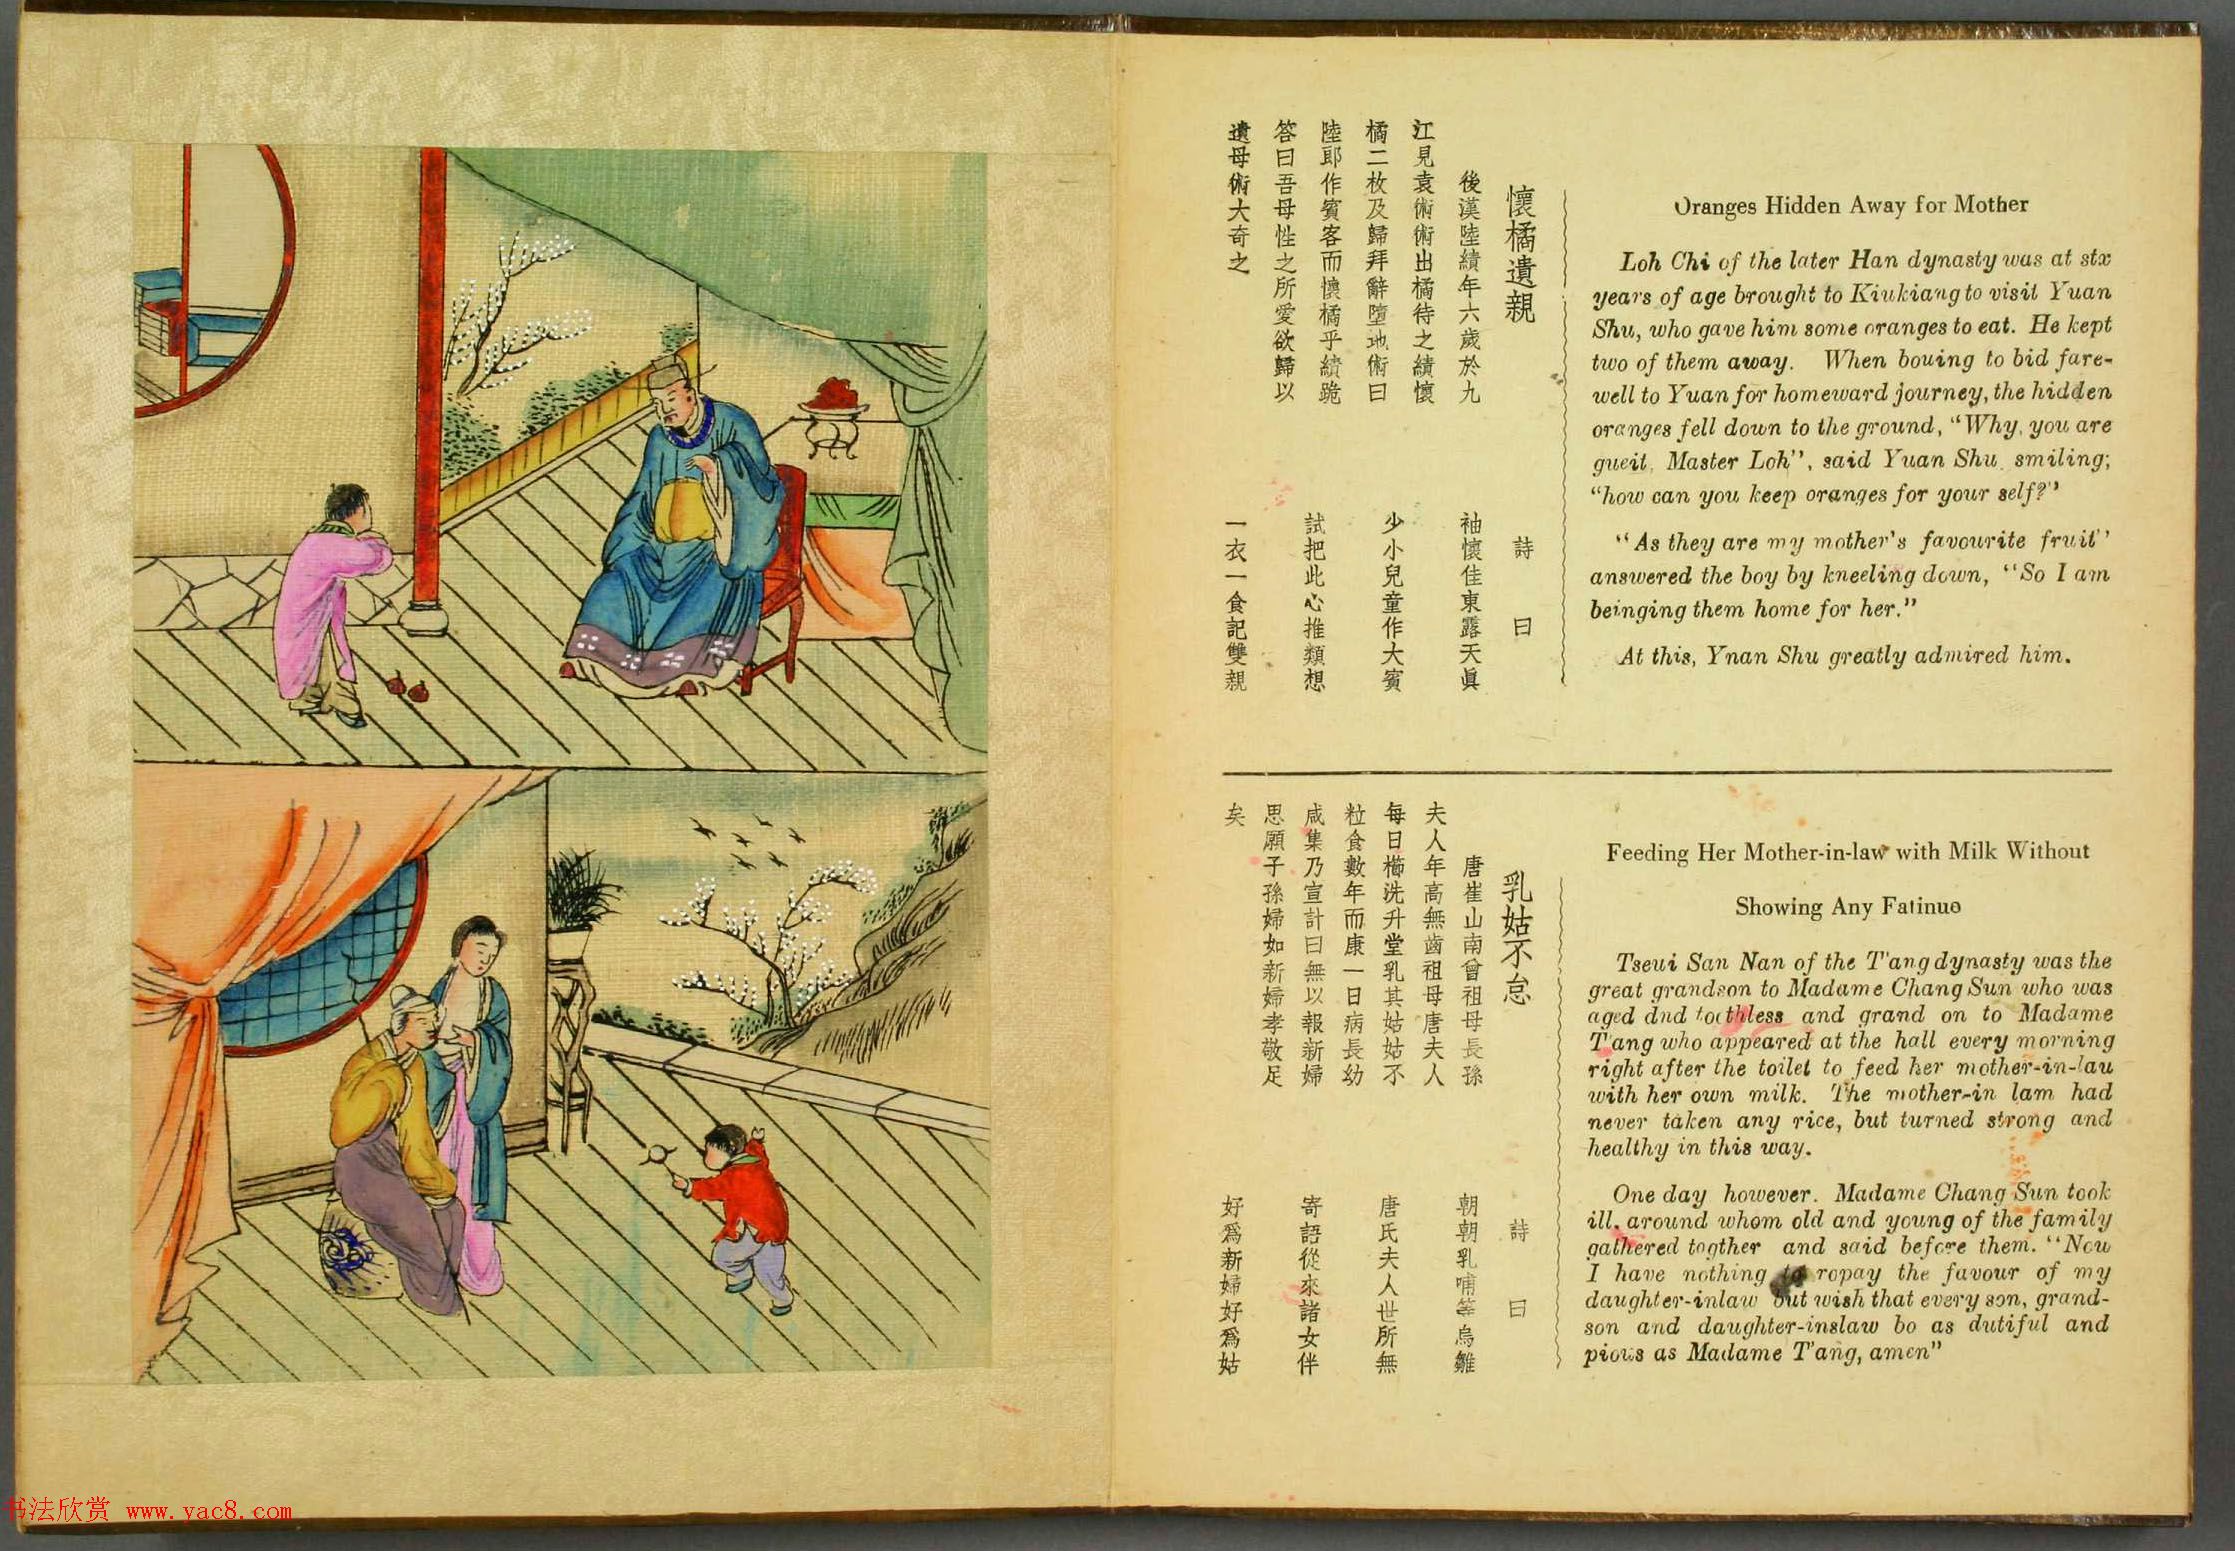 Oranges Hidden Away for Mother
Loh Chi of the later Han dynasty was at stx
years of age brought to Kiukiang to visit Yuan
Shu, who gave him some oranges to eat. He kept
two of them away. When bouing to bid fare-
well to Yuan for homeward journey, the hidden
oranges fell down to the ground, "Why, you are
gueit, Master Loh", said Yuan Shu smiling;
"how can you keep oranges for your self?"
"As they are my mother's favourite fruit"
answered the boy by kneeling down, "So I am
beinging them home for her."
At this, Ynan Shu greatly admired him.
懷橘遺親
後漢陸績年六歲於九
江見袁術術出橘待之績懷
橘二枚及歸拜辭墮地術曰
陸郎作賓客而懷橘乎績跪
答曰吾母性之所愛欲歸以
遺母術大奇之
詩曰
袖懷佳東露天眞
少小兒童作大賓
試把此心推類想
一衣一食記雙親
Feeding Her Mother-in-law with Milk Without
Showing Any Fatinue
Tseui San Nan of the T'ang dynasty was the
great grandson to Madame Chang Sun who was
aged dnd toothless and grand on to Madame
T'ang who appeared at the hall every morning
right after the toilet to feed her mother-in-lau
with her own milk. The mother-in lam had
never taken any rice, but turned strong and
healthy in this way.
One day however. Madame Chang Sun took
ill, around whom old and young of the family
gathered togther and said before them. "Now
I have nothing to ropay the favour of my
daughter-inlaw but wish that every son, grand-
son and daughter-inslaw bo as dutiful and
pious as Madame T'ang, amen"
乳姑不怠
唐崔山南曾祖母長孫
夫人年高無齒祖母唐夫人
每日櫛洗升堂乳其姑姑不
粒食數年而康一日病長幼
咸集乃宣計曰無以報新婦
思願子孫婦如新婦孝敬足
矣
詩曰
朝朝乳哺等烏雛
唐氏夫人世所無
寄語從來諸女伴
好爲新婦好爲姑
书法欣赏 www.yac8.com